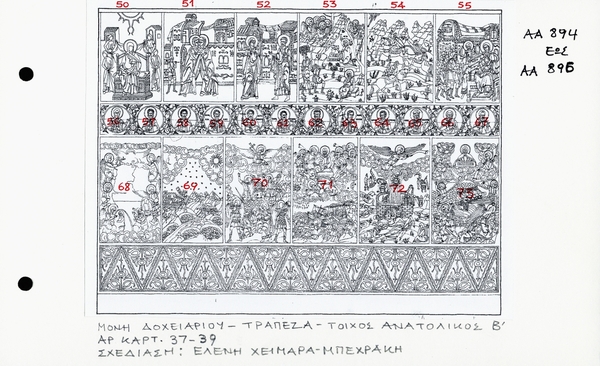 50 51 52 53 54 55
ΑΑ 894
ΕΩΣ
ΑΑ 895
56 57 58 59 60 61 62 63 64 65 66 67
68 69 70 71 72 73
ΜΟΝΗ ΔΟΧΕΙΑΡΙΟΥ – ΤΡΑΠΕΖΑ – ΤΟΙΧΟΣ ΑΝΑΤΟΛΙΚΟΣ Β'
ΑΡ ΚΑΡΤ. 37-39
ΣΧΕΔΙΑΣΗ: ΕΛΕΝΗ ΧΕΙΜΑΡΑ-ΜΠΕΧΡΑΚΗ